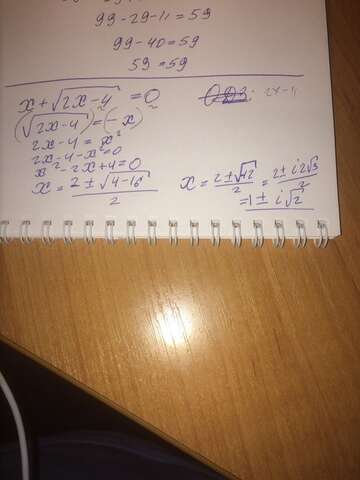 99-29-11=59
99-40=59
59=59
x+√2x-4 =0
(√2x-4)²=(-x)²
2x-4=x²
2x-4-x²=0
x²-2x+4=0
x=2±√4-16/2
x=2±√-12/2=2±i2√3/2
=1±i√2